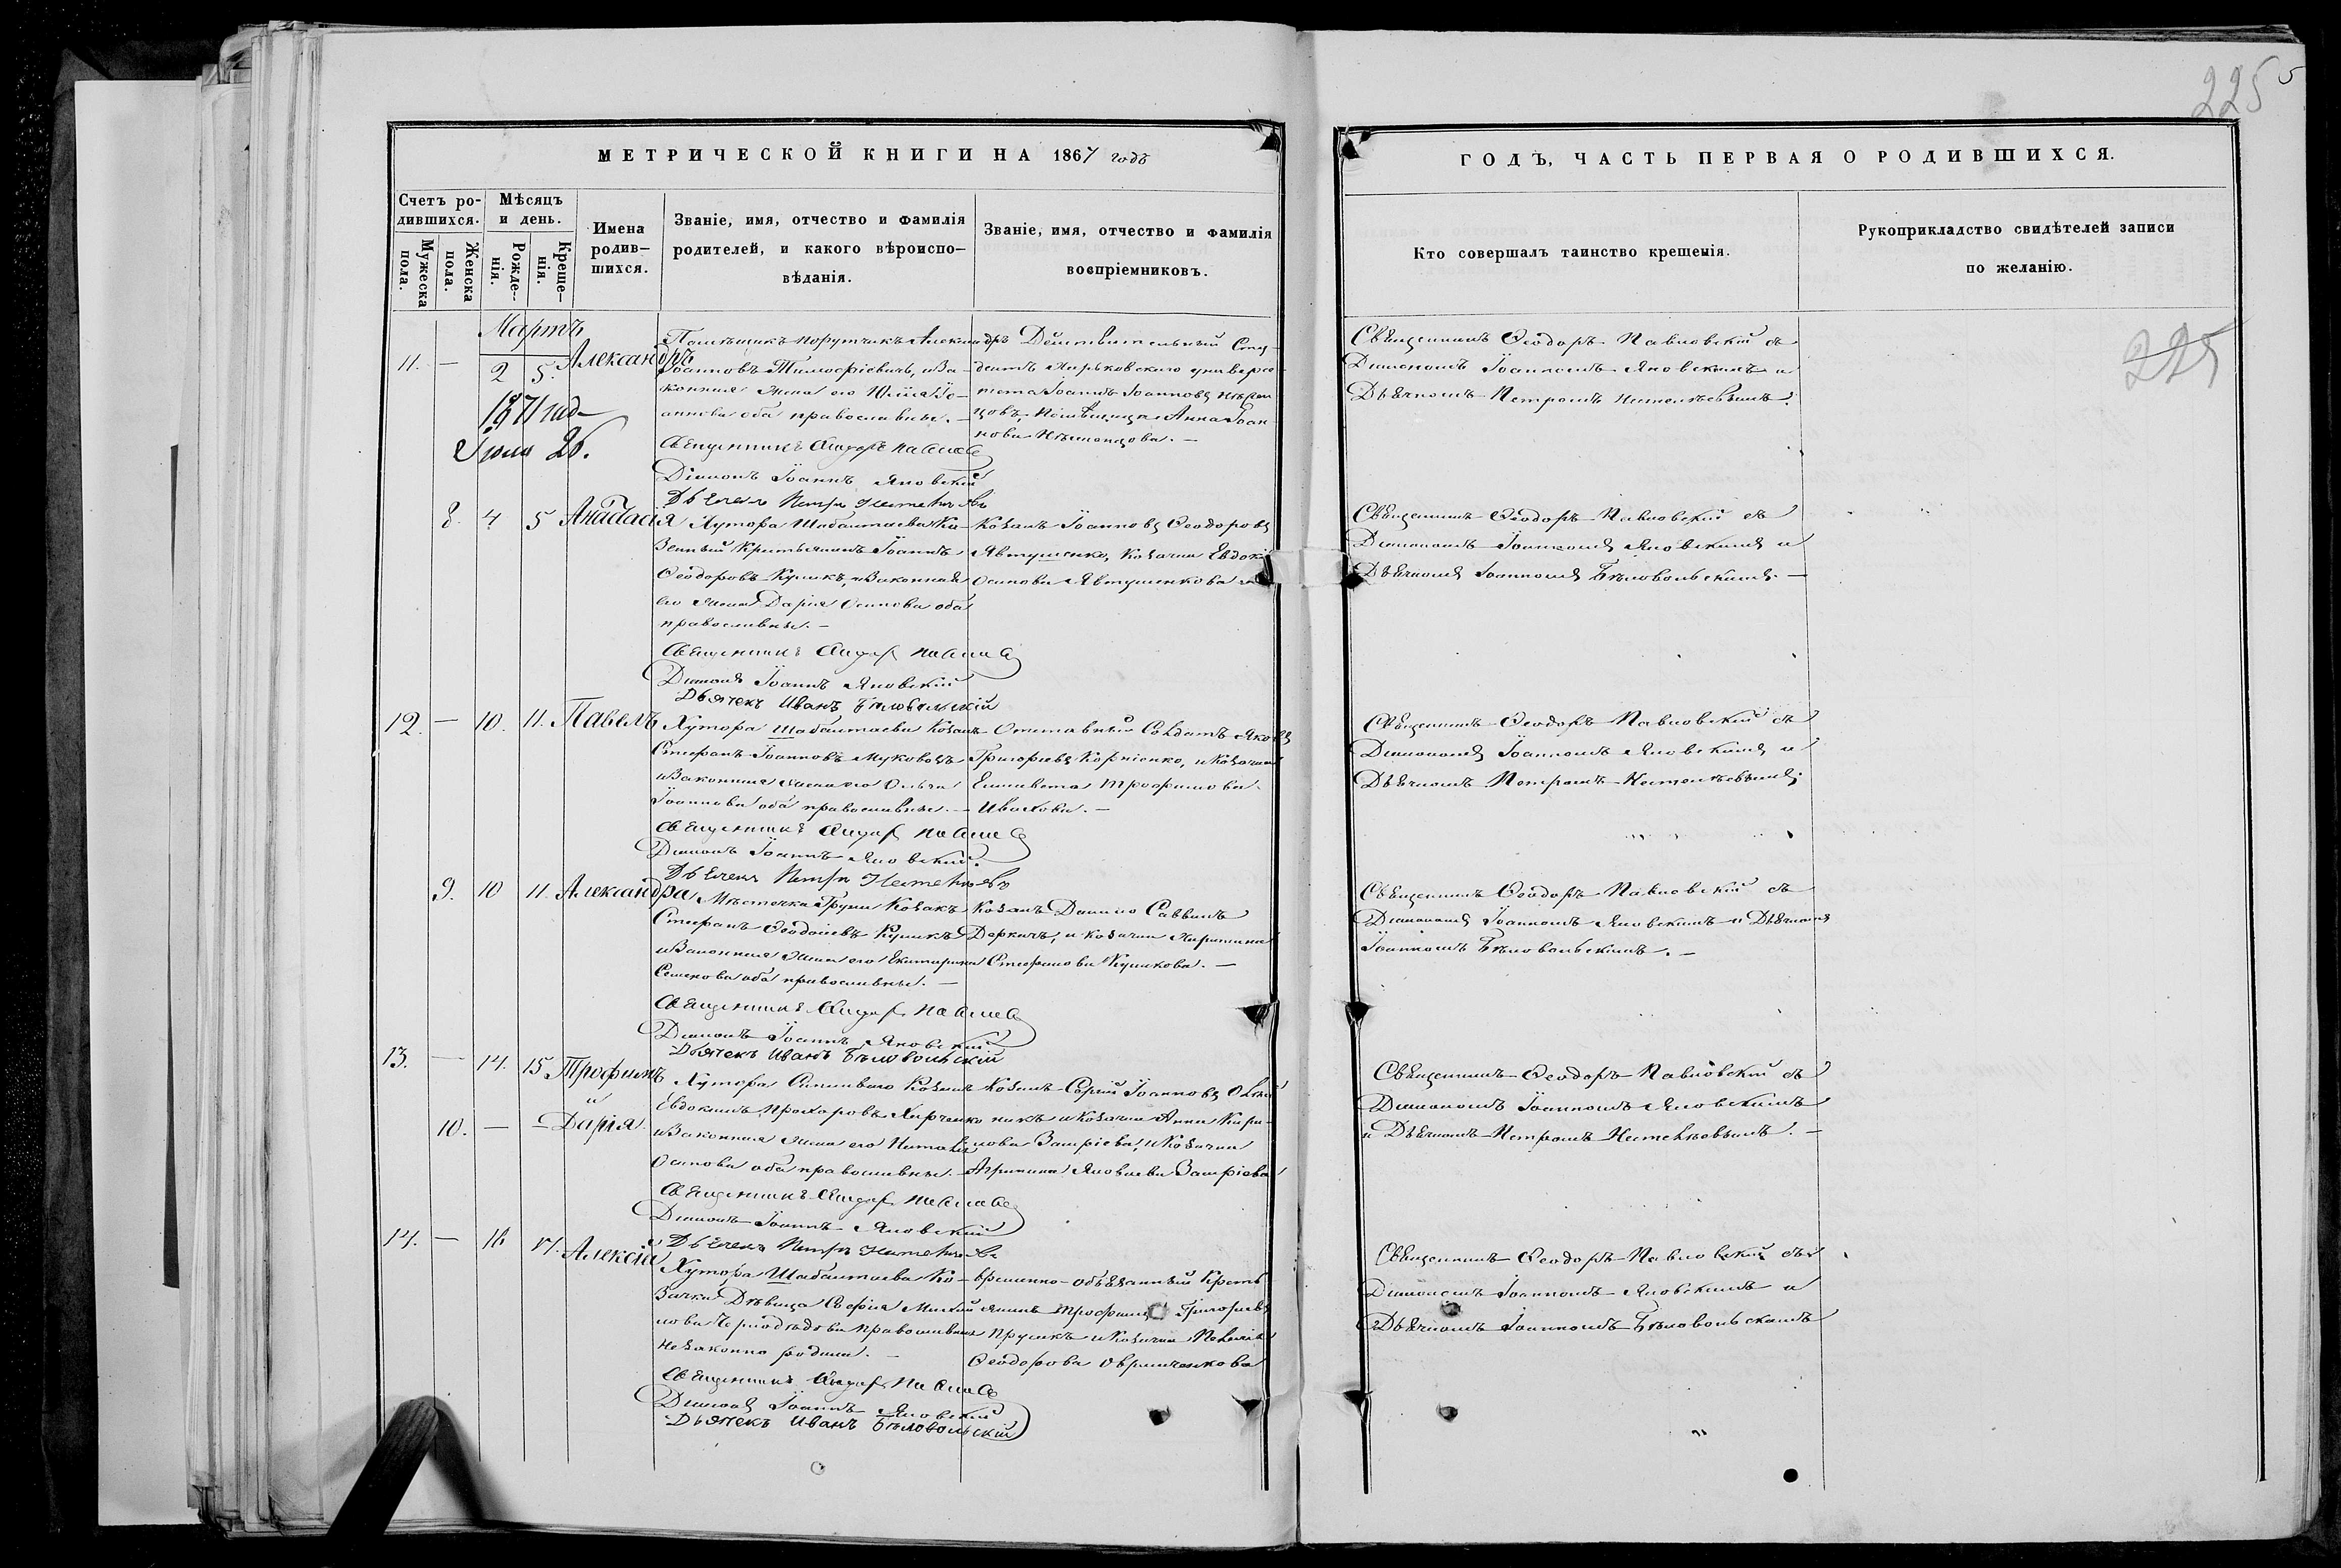 225
5
МЕТРИЧЕСКОЙ КНИГИ НА 1867 годъ
Счетъ родившихся.
Мужеска пола.
Женска пола.
Мѣсяцъ и день.
Рожденія.
Крещенія.
Имена родившихся.
Званіе, имя, отчество и фамилія
родителей, и какого вѣроиспо-
вѣданія.
Званіе, имя, отчество и фамилія
воспріемниковъ.
ГОДЪ, ЧАСТЬ ПЕРВАЯ О РОДИВШИХСЯ.
Кто совершалъ таинство крещенія.
Рукоприкладство свидѣтелей записи
по желанію.
225
Мартъ
11. — 2 5. Александръ
1871 года
Іюля 26.
Помѣщикъ порутчикъ Александръ
Іоанновъ Тимофіевичъ, и за-
конная жена его Юлія Іо-
аннова оба православные.
Священникъ Ѳеодоръ Павловскій
Діаконъ Іоаннъ Яновскій
Дьячекъ Петръ
Дѣйствительный Сту-
дентъ Харьковскаго универси-
тета Іоаннъ Іоанновъ
помѣщица Анна Іоан-
нова
Священникъ Ѳеодоръ Павловскій съ
Діакономъ Іоанномъ Яновскимъ и
Дьячкомъ Петромъ
8. 4 5 Анастасія
Хутора Шабалтаева Ка-
зенный Крестьянинъ Іоаннъ
Ѳеодоровъ Куликъ, и законная
его жена Дарія Осипова оба
православные. —
Священникъ Ѳеодоръ Павловскій
Діаконъ Іоаннъ Яновскій
Дьячекъ Иванъ Бѣловольскій
Козакъ Іоанновъ Ѳеодоровъ
Явтушенко, Козачка Евдокія
Осипова Явтушенкова
Священникъ Ѳеодоръ Павловскій съ
Діакономъ Іоанномъ Яновскимъ и
Дьячкомъ Іоанномъ Бѣловольскимъ. —
12. — 10. 11. Павелъ
Хутора Шабалтаева Козакъ
Стефанъ Іоанновъ Муковозъ
и законная жена его Ольга
Іоаннова оба православные. —
Священникъ Ѳеодоръ Павловскій
Діаконъ Іоаннъ Яновскій.
Дьячекъ Петръ
Отставный Солдатъ Яковъ
Григорьевъ Корніенко, и Козачка
Елисавета Трофимова
Ивахова. —
Священникъ Ѳеодоръ Павловскій съ
Діакономъ Іоанномъ Яновскимъ и
Дьячкомъ Петромъ
9. 10 11 Александра
Мѣстечка Груни Козакъ
Стефанъ Ѳеодосіевъ Куликъ
и законная жена его Екатерина
Семенова оба православные. —
Священникъ Ѳеодоръ Павловскій
Діаконъ Іоаннъ Яновскій
Дьячекъ Иванъ Бѣловольскій
Козакъ Данило Саввинъ
Деркачъ, и козачка Харитина
Стефанова Куликова. —
Священникъ Ѳеодоръ Павловскій съ
Діакономъ Іоанномъ Яновскимъ и Дьячкомъ
Іоанномъ Бѣловольскимъ. —
13. — 14. 15 Трофимъ
и
10. — — Дарія
Хутора Козакъ
Евдокимъ Прохоровъ Харченко
и законная жена его Наталія
Осипова оба православные. —
Священникъ Ѳеодоръ Павловскій
Діаконъ Іоаннъ Яновскій
Дьячекъ Петръ
Козакъ Сергій Іоанновъ
и Козачка Анна Кири-
лова Заирієва, и Козачка
Агрипина Яковлева Заирієва
Священникъ Ѳеодоръ Павловскій съ
Діакономъ Іоанномъ Яновскимъ
и Дьячкомъ Петромъ
14. — 16 17. Алексій
Хутора Шабалтаева Ко-
зачка Дѣвица Софія Михай-
лова православная
незаконно родила. —
Священникъ Ѳеодоръ Павловскій
Діаконъ Іоаннъ Яновскій
Дьячекъ Иванъ Бѣловольскій
временно-обязанный Кресть
янинъ Трофимъ Григорьевъ
Прусикъ и Козачка Пелагія
Ѳеодорова
Священникъ Ѳеодоръ Павловскій съ
Діакономъ Іоанномъ Яновскимъ и
Дьячкомъ Іоанномъ Бѣловольскимъ